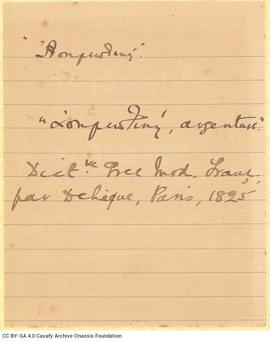 "Ἀσημωτής".
"Ἀσημωτής, argenteur"
Dictre Grec Mod. Franç.
par Dehèque, Paris, 1825
CC BY-SA 4.0 Cavafy Archive Onassis Foundation